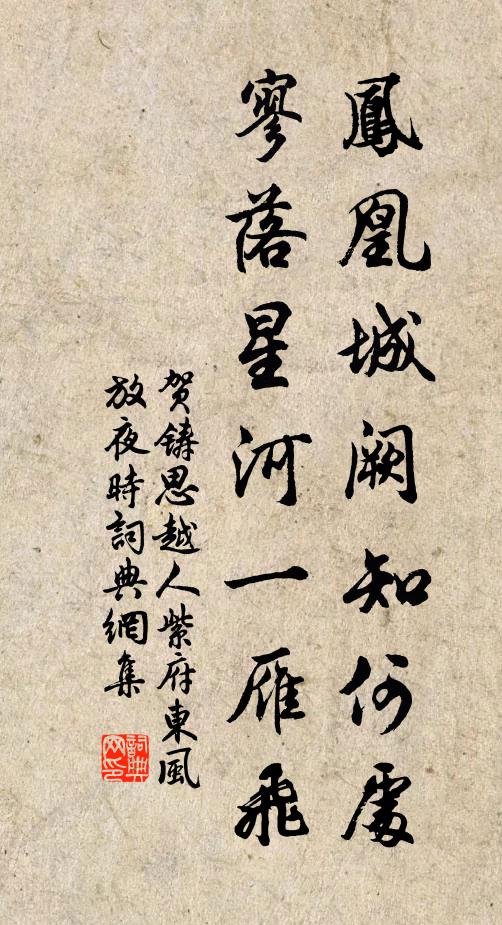 鳳凰城闕知何處
寥落星河一雁飛
賀鑄思越人紫府東風
放夜時詞典網集
詞典
网印